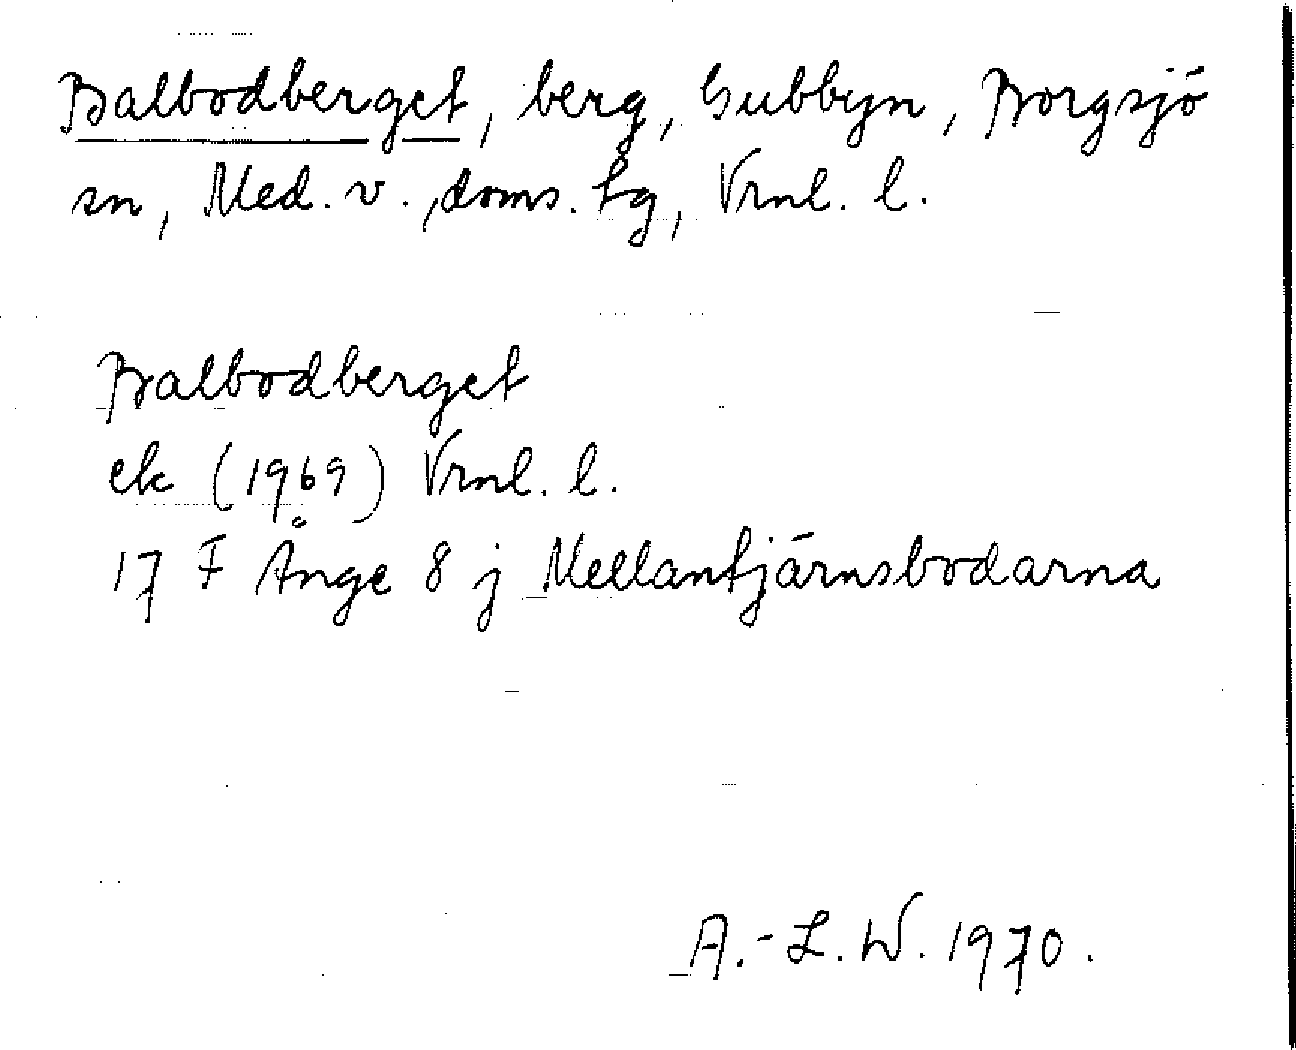 Balbodberget, berg, Gubbyn, Borgsjö
sn, Med. v., doms. tg, Vrnl. l.
Balbodberget
ek (1969) Vrnl. l.
17 F Ånge 8 j Mellantjärnsbodarna
A.-L. W. 1970.